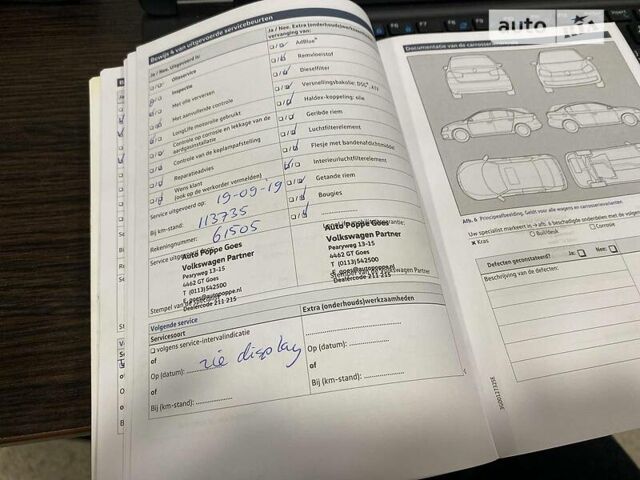 Bewijs 4 van uitgevoerde servicebeurten
Ja / Nee, Uitgevoerd is:
Olieservice
Inspectie
Met olie verversen
Met aanvullende controle
LongLife motorolie gebruikt
Controle op corrosie en lekkage van de
aardgasinstallatie
Controle van de koplampafstelling
Reparatieadvies
Wens klant
(ook op de werkorder vermelden)
Service uitgevoerd op: 19-09-'19
Bij km-stand: 113735
Rekeningnummer: 61505
Service uitgevoerd
Auto Poppe Goes
Volkswagen Partner
Pearyweg 13-15
4462 GT Goes
T (0113)542500
E goes@autopoppe.nl
Dealercode 211 215
Stempel van de
Ja / Nee, Extra (onderhouds)werkzaamheden
vervanging van:
AdBlue
Remvloeistof
Dieselfilter
Versnellingsbakolie: DSG
Haldex-koppeling: olie
Geribde riem
Luchtfilterelement
Flesje met bandenafdichtmiddel
Interieurluchtfilterelement
Getande riem
Bougies
Auto Poppe Goes
Volkswagen Partner
Pearyweg 13-15
4462 GT Goes
T (0113)542500
E goes@autopoppe.nl
Volkswagen Partner
Dealercode 211 215
Volgende service
Servicesoort
volgens service-intervalindicatie
of
Op (datum): zie display
of
Bij (km-stand):
Extra (onderhouds)werkzaamheden
Op (datum):
of
Bij (km-stand):
Documentatie van de carrosserie
Afb. 6 Principeafbeelding. Geldt voor alle wagens en carrosserievarianten.
Uw specialist markeert in afb. 6 beschadigde onderdelen met de volgende
× Kras
○ Buil/deuk
□ Corrosie
Defecten geconstateerd? Ja: Nee:
Beschrijving van de defecten:
auto